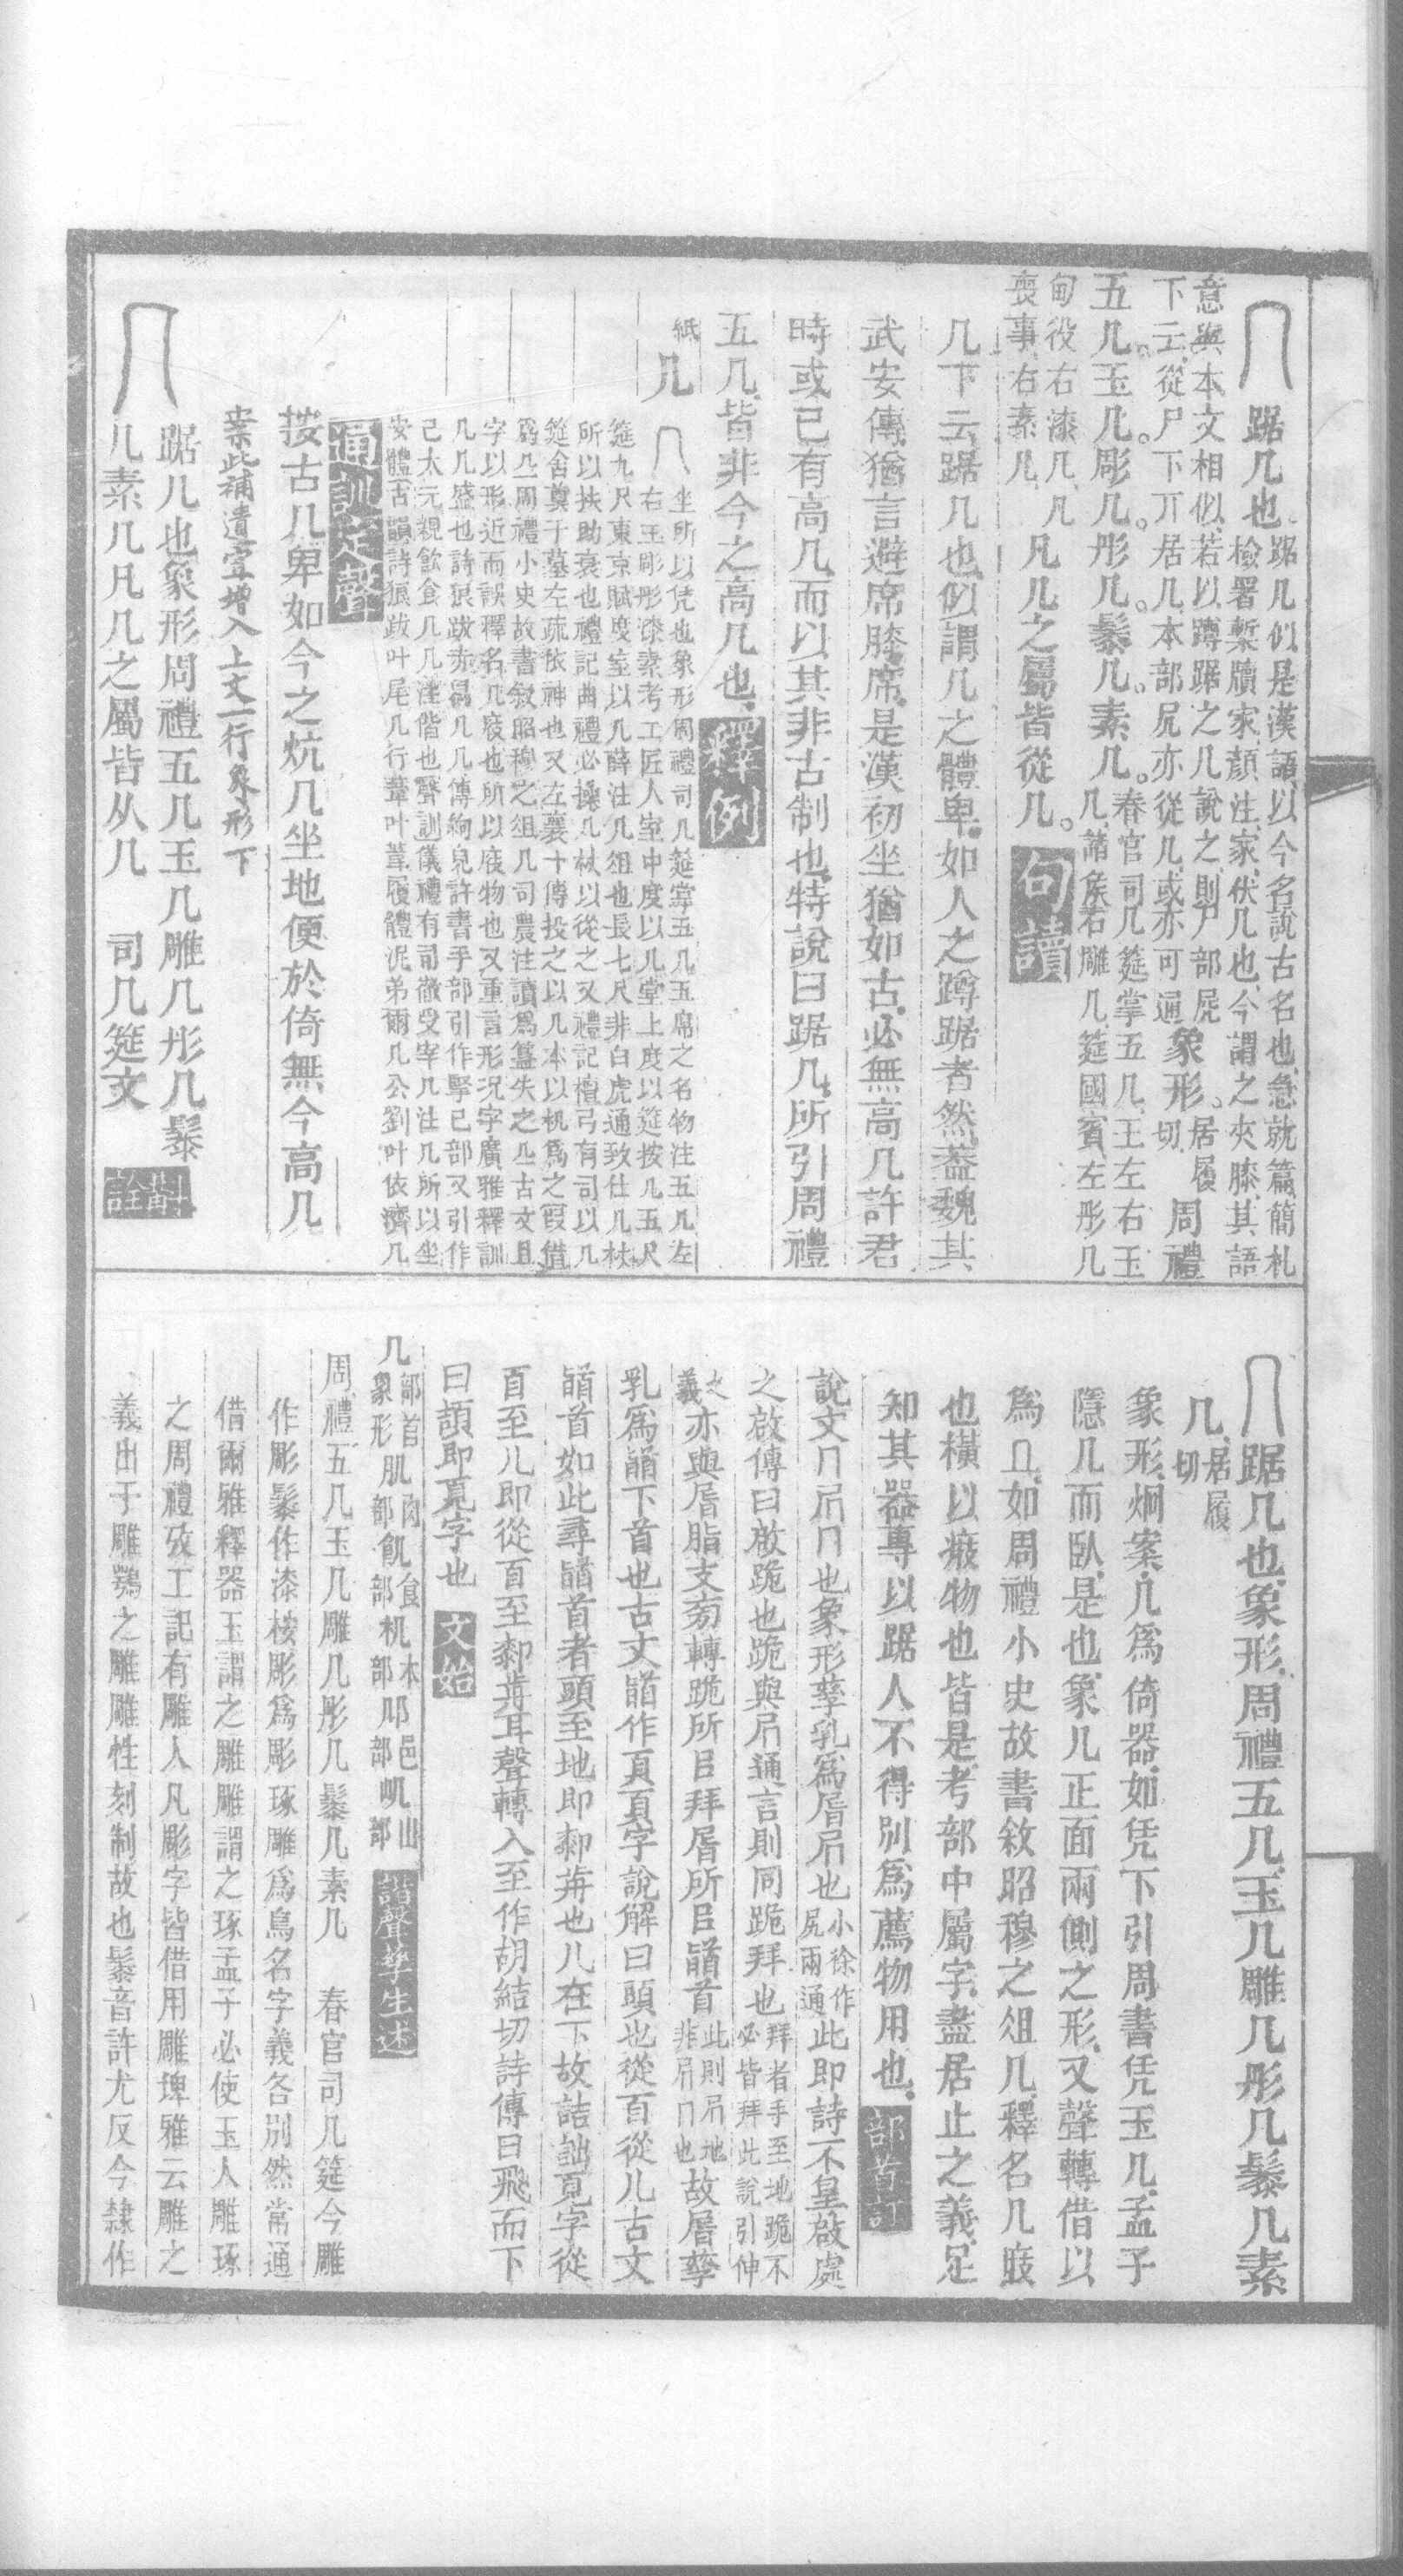 几 踞几也。踞几似是漢語、以今名說古名也、急就篇、簡札
檢署槧牘家、顏注、家、伏几也、今謂之夾膝、其語
意與本文相似、若以蹲踞之几說之、則尸部凥
下云、從尸下丌居几、本部凥亦從几、或亦可通 象形。居履切 周禮
五几。玉几。彫几。彤几。鬃几。素几。春官司几筵掌五几、王左右玉
几、諸侯右雕几、筵國賓左彤几
甸役右漆几、凡
喪事、右素几 凡几之屬皆從几。句讀
几下云、踞几也、似謂几之體卑、如人之蹲踞者然、蓋魏其
武安傳猶言避席膝席、是漢初坐猶如古、必無高几、許君
時或已有高几、而以其非古制也、特說曰踞几、所引周禮
五几、皆非今之高几也、釋例
紙 几 坐所以凭也象形周禮司几筵掌五几五席之名物注五几左
右玉彫彤漆素考工匠人室中度以几堂上度以筵按几五尺
筵九尺東京賦度室以几薛注几俎也長七尺非白虎通致仕几杖
所以扶助衰也禮記曲禮必操几杖以從之又禮記檀弓有司以几
筵舍奠于墓左疏依神也又左襄十傳投之以几本以机為之叚借
爲亼周禮小史故書敍昭穆之俎几司農注讀爲簋失之亼古文且
字以形近而誤釋名几庪也所以庪物也又重言形况字廣雅釋訓
几几盛也詩狼跋赤舄几几傳絇皃許書手部引作掔己部又引作
己太元親飲食几几注偕也聲訓儀禮有司徹受宰几注几所以坐
安體古韻詩狼跋叶尾几行葦叶葦履體泥弟爾几公劉叶依濟几
通訓定聲
按古几卑如今之炕几坐地便於倚無今高几
案此補遺宜增入上文一行象形下
几 踞几也象形周禮五几玉几雕几彤几鬃
几素几凡几之屬皆从几 司几筵文 斠詮
几 踞几也、象形、周禮五几、玉几雕几彤几鬃几素
几、居履切
象形、炯案、几爲倚器、如凭下引周書凭玉几、孟子
隱几而臥、是也、象几正面兩側之形、又聲轉借以
爲亼、如周禮小史故書敘昭穆之俎几、釋名几庪
也橫以庪物也皆是、考部中屬字、盡居止之義、足
知其器專以踞人不得別爲薦物用也、部首訂
說文几凥几也象形孳乳爲居凥也小徐作凥兩通此即詩不皇啟處
之啟傳曰啟跪也跪與凥通言則同跪拜也拜者手至地跪不必皆拜此說引伸
之義亦與居脂支旁轉跪所㠯拜居所㠯䭫首此則凥地非凥几也故居孳
乳爲䭫下首也古文䭫作𩒨頁字說解曰頭也從𦣻從儿古文
䭫首如此尋䭫首者頭至地即𨚫
𦣻至儿即從𦣻至𨚫
曰頡即𩒨字也 文始
几部首象形肌肉部飢食部机木部𨙸邑部屼山部 諧聲孳生述
周禮五几玉几雕几彤几鬃几素几 春官司几筵今雕
作彫鬃作漆桉彫爲彫琢雕爲鳥名字義各別然常通
借爾雅釋器玉謂之雕雕謂之琢孟子必使玉人雕琢
之周禮攷工記有雕人凡彫字皆借用雕埤雅云雕之
義出于雕鶚之雕雕性刻制故也鬃音許尤反今隸作